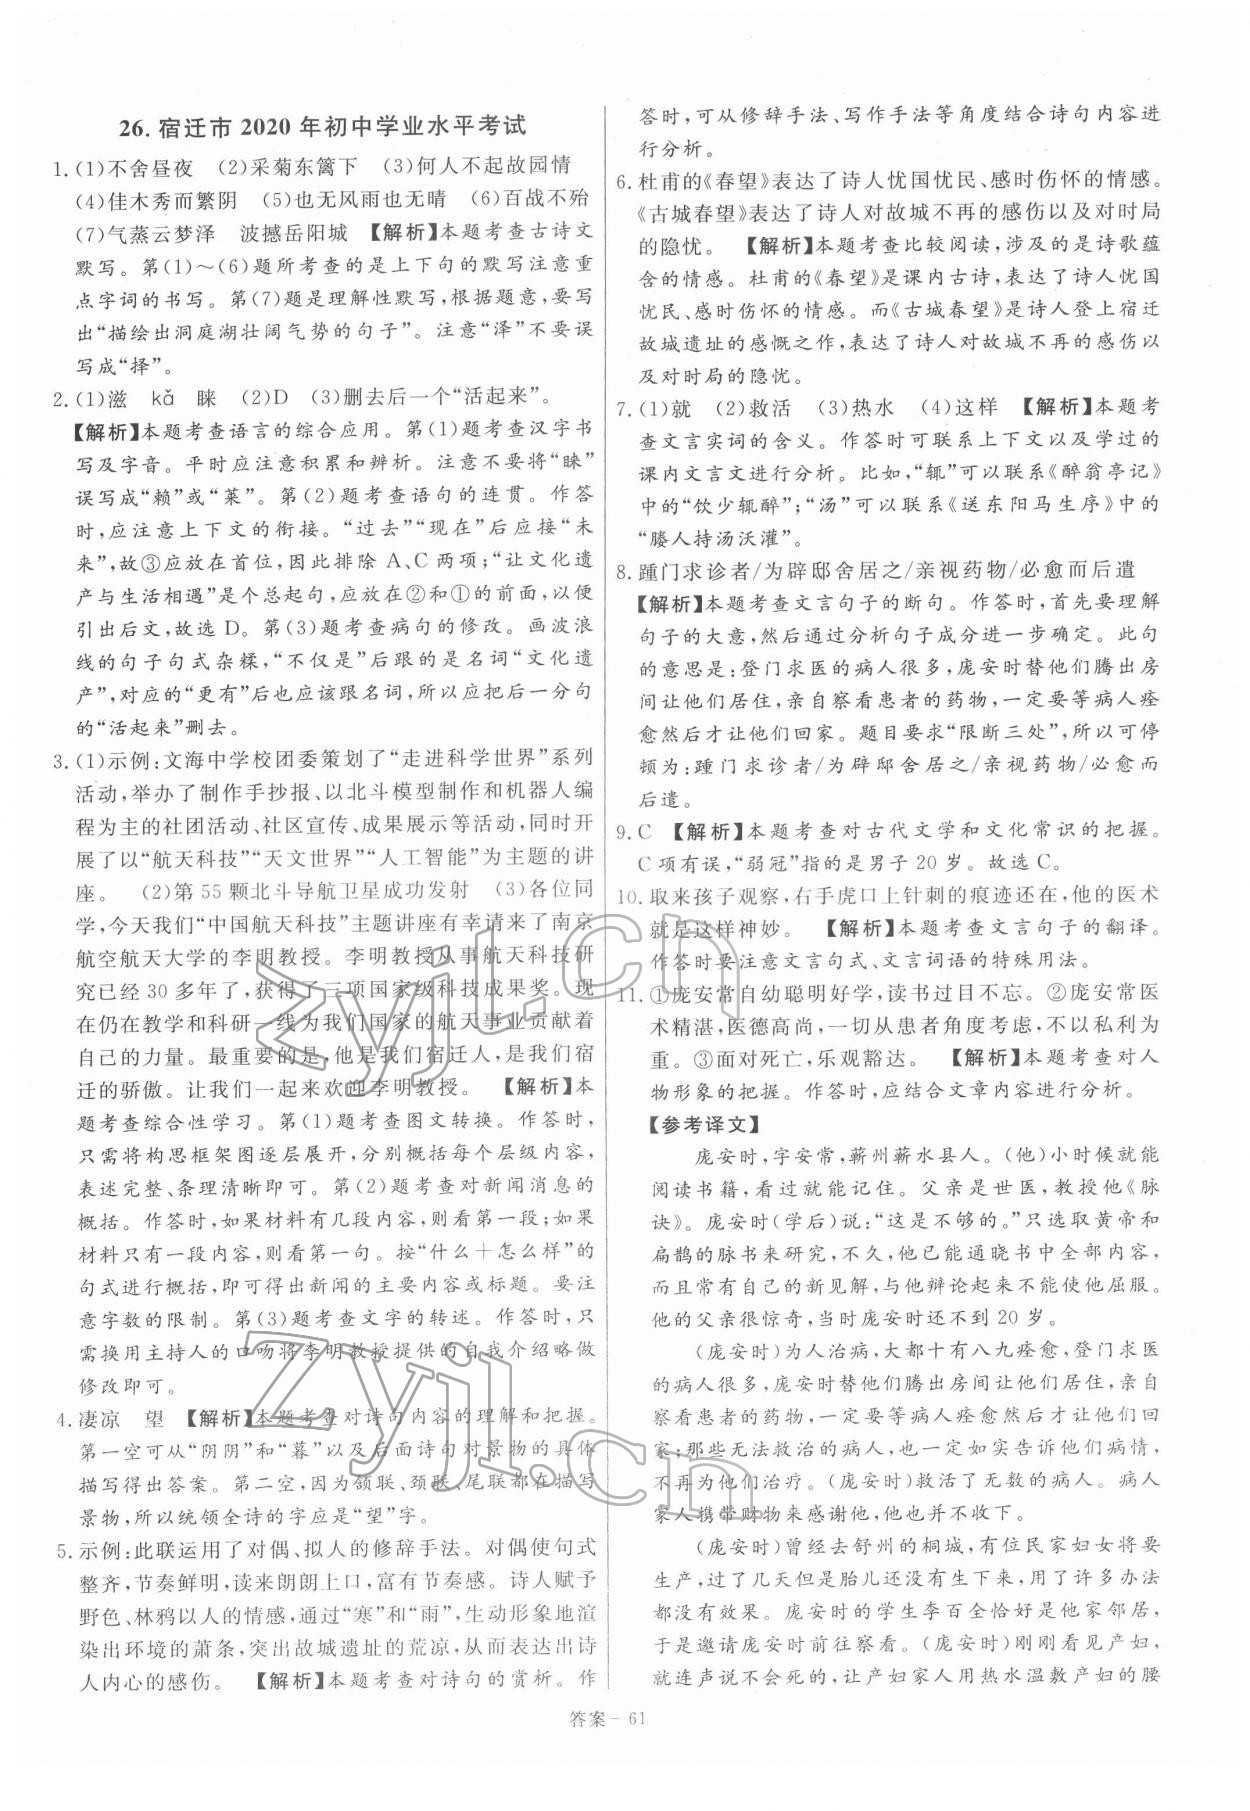 26. 宿迁市 2020 年初中学业水平考试
1. (1)不舍昼夜　(2)采菊东篱下　(3)何人不起故园情
(4)佳木秀而繁阴　(5)也无风雨也无晴　(6)百战不殆
(7)气蒸云梦泽　波撼岳阳城　【解析】本题考查古诗文
默写。第(1)～(6)题所考查的是上下句的默写注意重
点字词的书写。第(7)题是理解性默写,根据题意,要写
出“描绘出洞庭湖壮阔气势的句子”。注意“泽”不要误
写成“择”。
2. (1)滋　kǎ　睐　(2)D　(3)删去后一个“活起来”。
【解析】本题考查语言的综合应用。第(1)题考查汉字书
写及字音。平时应注意积累和辨析。注意不要将“睐”
误写成“赖”或“莱”。第(2)题考查语句的连贯。作答
时,应注意上下文的衔接。“过去”“现在”后应接“未
来”,故③应放在首位,因此排除 A、C 两项;“让文化遗
产与生活相遇”是个总起句,应放在②和①的前面,以便
引出后文,故选 D。第(3)题考查病句的修改。画波浪
线的句子句式杂糅,“不仅是”后跟的是名词“文化遗
产”,对应的“更有”后也应该跟名词,所以应把后一分句
的“活起来”删去。
3. (1)示例:文海中学校团委策划了“走进科学世界”系列
活动,举办了制作手抄报、以北斗模型制作和机器人编
程为主的社团活动、社区宣传、成果展示等活动,同时开
展了以“航天科技”“天文世界”“人工智能”为主题的讲
座。　(2)第 55 颗北斗导航卫星成功发射　(3)各位同
学,今天我们“中国航天科技”主题讲座有幸请来了南京
航空航天大学的李明教授。李明教授从事航天科技研
究已经 30 多年了,获得了三项国家级科技成果奖。现
在仍在教学和科研一线为我们国家的航天事业贡献着
自己的力量。最重要的是,他是我们宿迁人,是我们宿
迁的骄傲。让我们一起来欢迎李明教授。　【解析】本
题考查综合性学习。第(1)题考查图文转换。作答时,
只需将构思框架图逐层展开,分别概括每个层级内容,
表述完整、条理清晰即可。第(2)题考查对新闻消息的
概括。作答时,如果材料有几段内容,则看第一段;如果
材料只有一段内容,则看第一句。按“什么＋怎么样”的
句式进行概括,即可得出新闻的主要内容或标题。要注
意字数的限制。第(3)题考查文字的转述。作答时,只
需换用主持人的口吻将李明教授提供的自我介绍略做
修改即可。
4. 凄凉　望　【解析】本题考查对诗句内容的理解和把握。
第一空可从“阴阴”和“暮”以及后面诗句对景物的具体
描写得出答案。第二空,因为颔联、颈联、尾联都在描写
景物,所以统领全诗的字应是“望”字。
5. 示例:此联运用了对偶、拟人的修辞手法。对偶使句式
整齐,节奏鲜明,读来朗朗上口,富有节奏感。诗人赋予
野色、林鸦以人的情感,通过“寒”和“雨”,生动形象地渲
染出环境的萧条,突出故城遗址的荒凉,从而表达出诗
人内心的感伤。　【解析】本题考查对诗句的赏析。作
答时,可从修辞手法、写作手法等角度结合诗句内容进
行分析。
6. 杜甫的《春望》表达了诗人忧国忧民、感时伤怀的情感。
《古城春望》表达了诗人对故城不再的感伤以及对时局
的隐忧。　【解析】本题考查比较阅读,涉及的是诗歌蕴
含的情感。杜甫的《春望》是课内古诗,表达了诗人忧国
忧民、感时伤怀的情感。而《古城春望》是诗人登上宿迁
故城遗址的感慨之作,表达了诗人对故城不再的感伤以
及对时局的隐忧。
7. (1)就　(2)救活　(3)热水　(4)这样　【解析】本题考
查文言实词的含义。作答时可联系上下文以及学过的
课内文言文进行分析。比如,“辄”可以联系《醉翁亭记》
中的“饮少辄醉”;“汤”可以联系《送东阳马生序》中的
“媵人持汤沃灌”。
8. 踵门求诊者/为辟邸舍居之/亲视药物/必愈而后遣
【解析】本题考查文言句子的断句。作答时,首先要理解
句子的大意,然后通过分析句子成分进一步确定。此句
的意思是:登门求医的病人很多,庞安时替他们腾出房
间让他们居住,亲自察看患者的药物,一定要等病人痊
愈然后才让他们回家。题目要求“限断三处”,所以可停
顿为:踵门求诊者/为辟邸舍居之/亲视药物/必愈而
后遣。
9. C　【解析】本题考查对古代文学和文化常识的把握。
C 项有误,“弱冠”指的是男子 20 岁。故选 C。
10. 取来孩子观察,右手虎口上针刺的痕迹还在,他的医术
就是这样神妙。　【解析】本题考查文言句子的翻译。
作答时要注意文言句式、文言词语的特殊用法。
11. ①庞安常自幼聪明好学,读书过目不忘。②庞安常医
术精湛,医德高尚,一切从患者角度考虑,不以私利为
重。③面对死亡,乐观豁达。　【解析】本题考查对人
物形象的把握。作答时,应结合文章内容进行分析。
【参考译文】
庞安时,字安常,蕲州蕲水县人。(他)小时候就能
阅读书籍,看过就能记住。父亲是世医,教授他《脉
诀》。庞安时(学后)说:“这是不够的。”只选取黄帝和
扁鹊的脉书来研究,不久,他已能通晓书中全部内容,
而且常有自己的新见解,与他辩论起来不能使他屈服。
他的父亲很惊奇,当时庞安时还不到 20 岁。
(庞安时)为人治病,大都十有八九痊愈,登门求医
的病人很多,庞安时替他们腾出房间让他们居住,亲自
察看患者的药物,一定要等病人痊愈然后才让他们回
家;那些无法救治的病人,也一定如实告诉他们病情,
不再为他们治疗。(庞安时)救活了无数的病人。病人
家人携带财物来感谢他,他也并不收下。
(庞安时)曾经去舒州的桐城,有位民家妇女将要
生产,过了几天但是胎儿还没有生下来,用了许多办法
都没有效果。庞安时的学生李百全恰好是他家邻居,
于是邀请庞安时前往察看。(庞安时)刚刚看见产妇,
就连声说不会死的,让产妇家人用热水温敷产妇的腰
答案－61
zyjl.cn
zyjl.cn